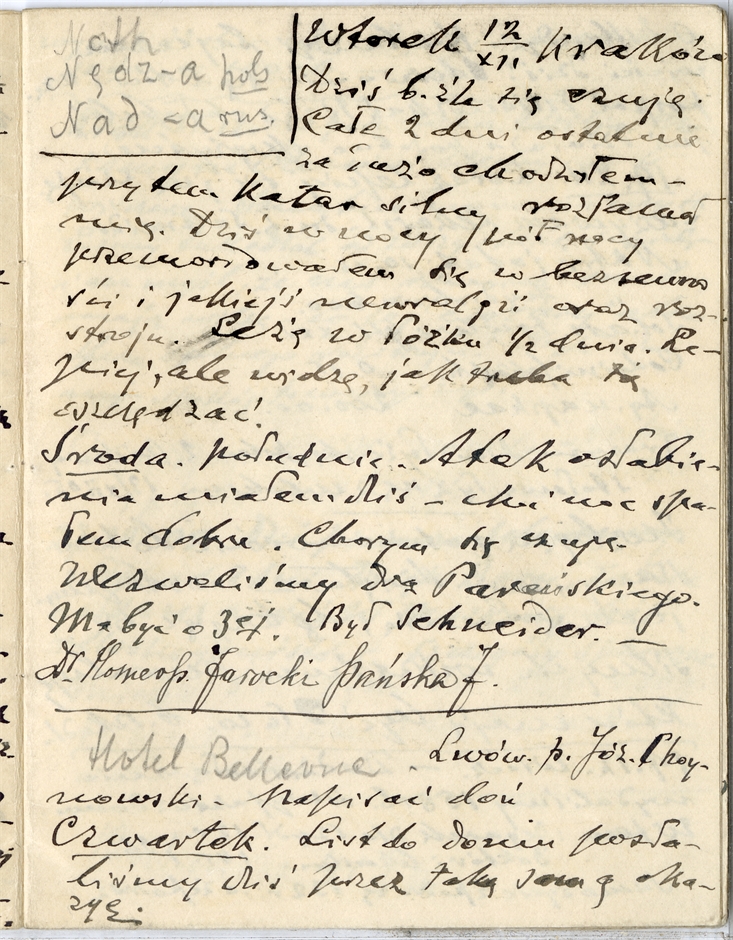 Noth
Nędz-a pols
Nad -a rus.
Wtorek 12/XII Kraków
Dziś b. źle się czuję.
Całe 2 dni ostatnie
za dużo chodziłem –
przytem Katar silny rozłamał
mię. Dziś w nocy / pół nocy
przemordowałem się w bezsenno
ści i jakiejś newralgii oraz roz-
stroju. Leżę w łóżku 1/2 dnia. Le-
piej, ale widzę, jak trzeba się
oszczędzać.
Środa. południe. Atak osłabie-
nia miałem dziś – choć noc spa-
łem dobrze. Chorym się czuję.
Wezwaliśmy dra Pareńskiego.
Ma być o 3ej. Był Schneider. —
Dr. Homeop. Jarocki Pańska 7.
Hotel Bellevue. Lwów. p. Józ. Choy-
nowski – napisać doń
Czwartek. List do domu posła-
liśmy dziś przez taką samą oka-
zyę.